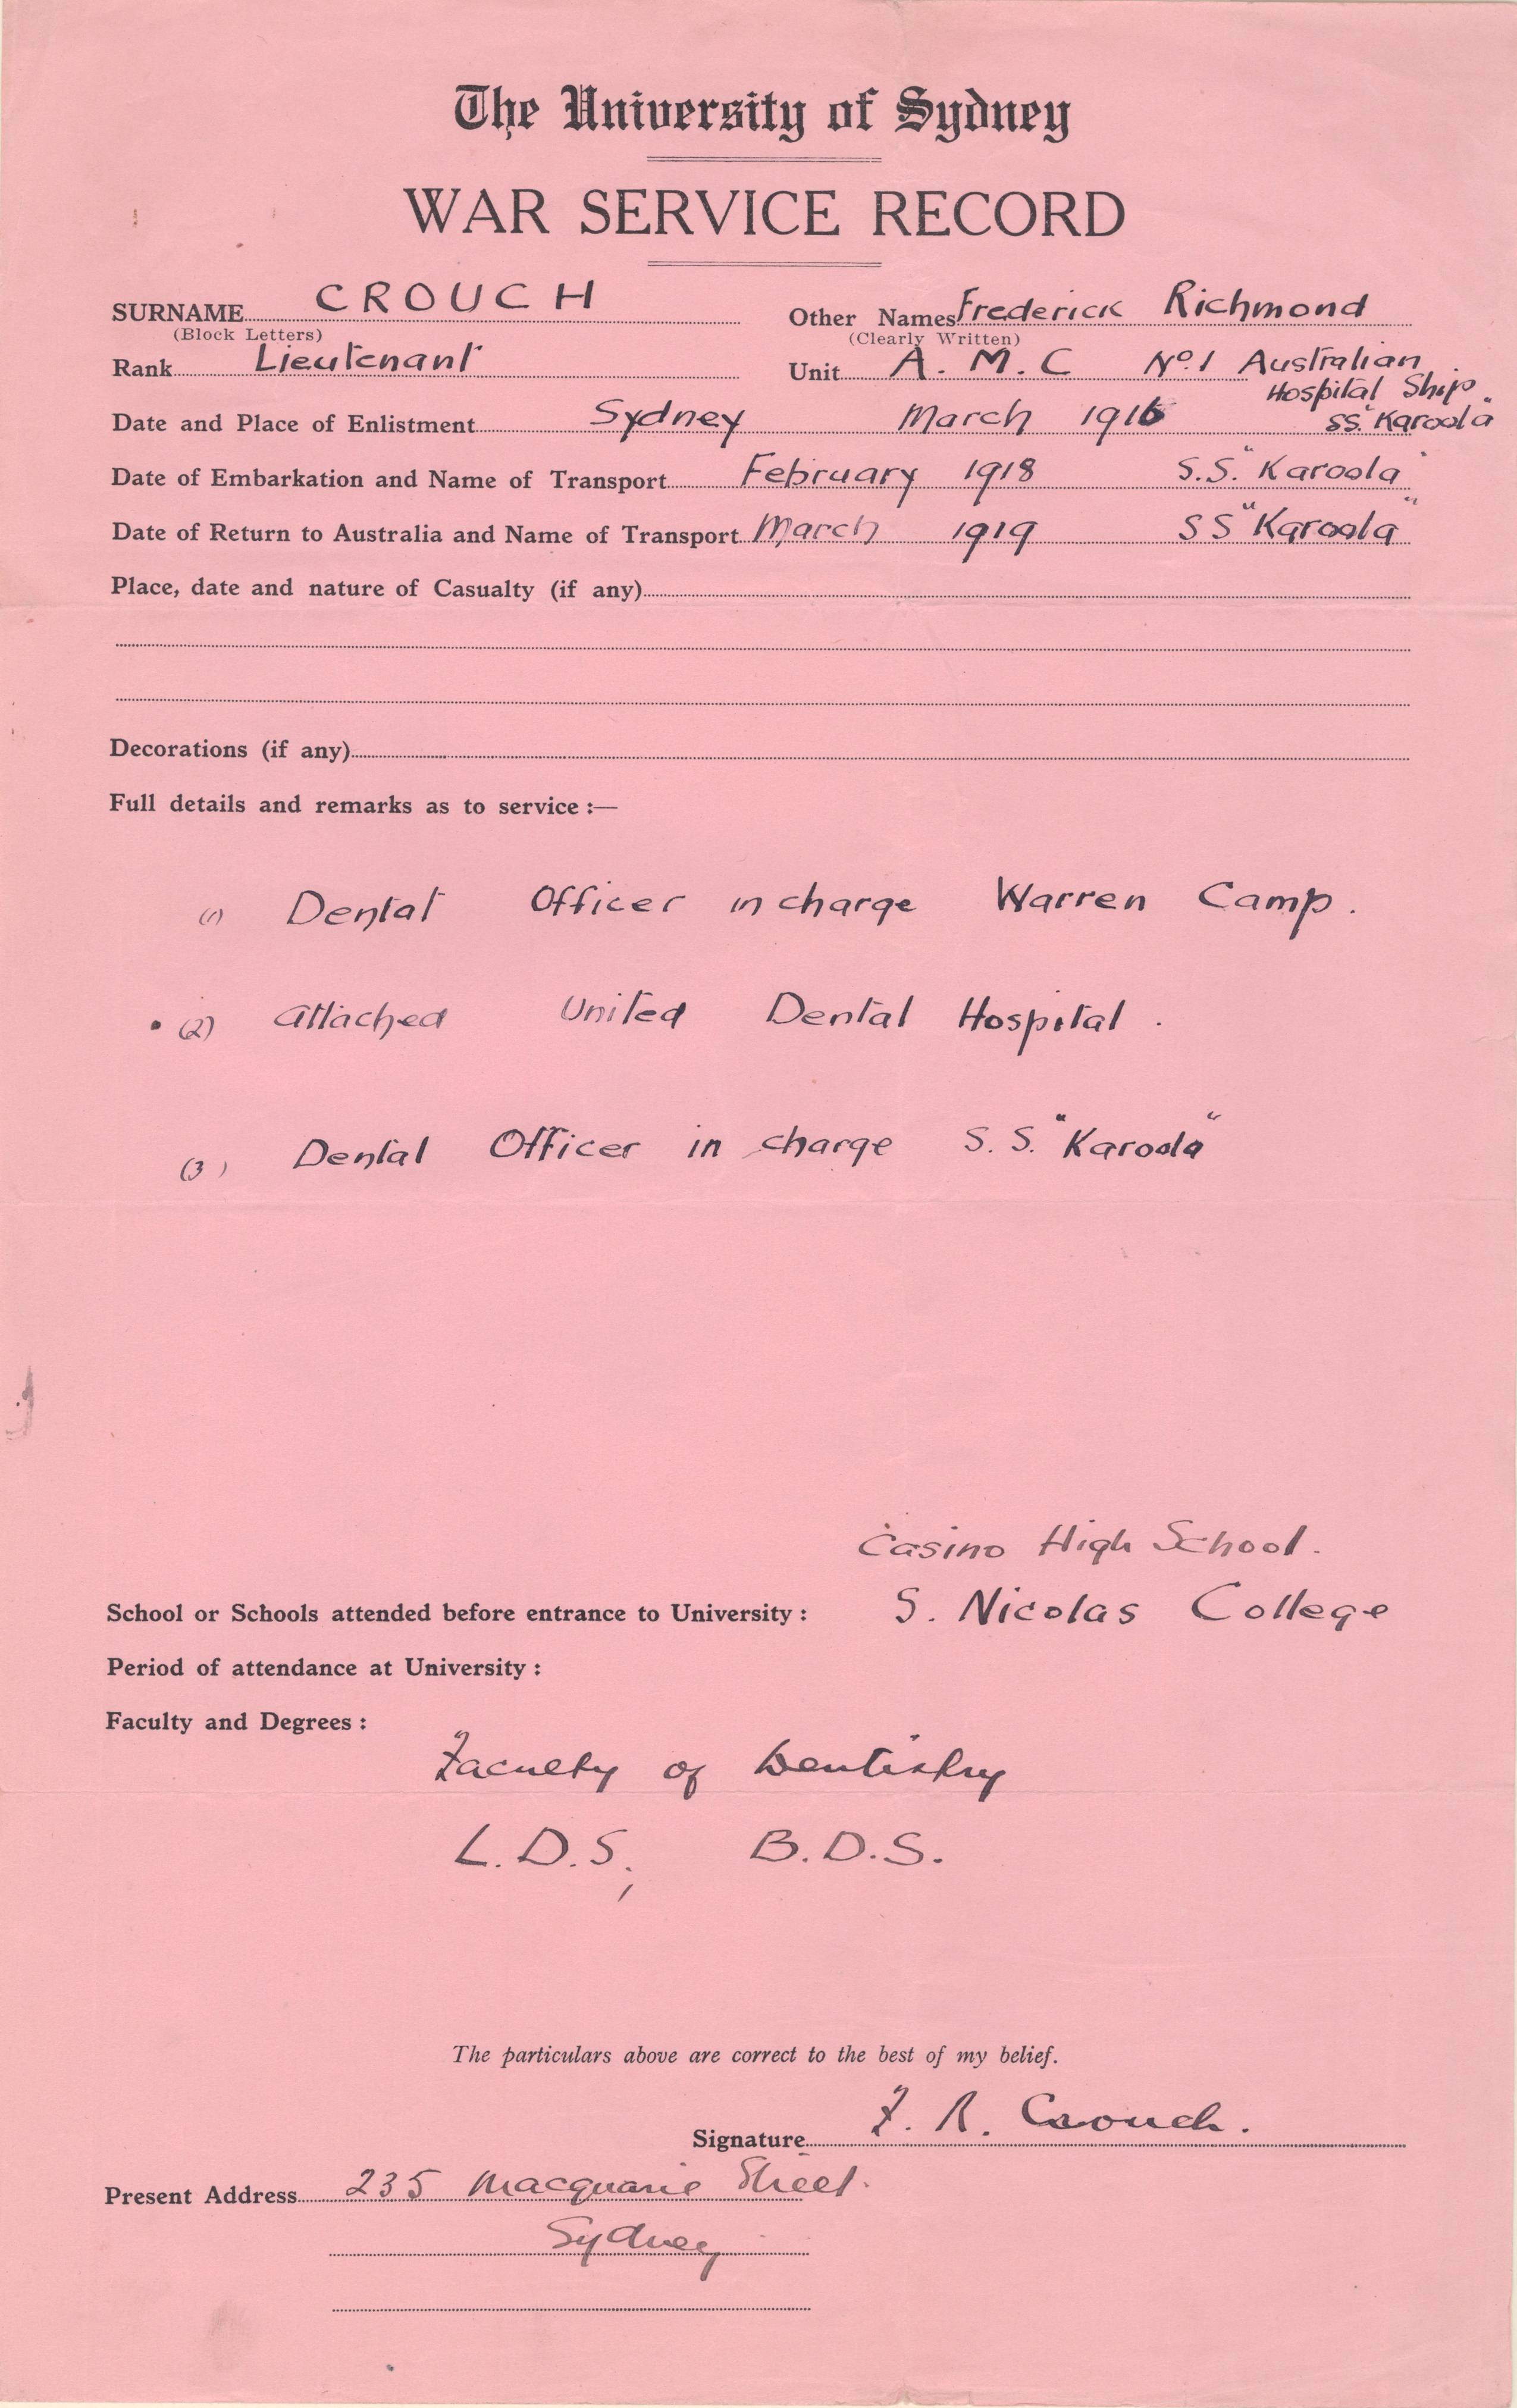 The University of Sydney
WAR SERVICE RECORD
SURNAME CROUCH Other Names Frederick Richmond
(Block Letters) (Clearly Written)
Rank Lieutenant Unit A. M. C No. 1 Australian
Hospital Ship
Date and Place of Enlistment Sydney March 1916 SS. "Karoola"
Date of Embarkation and Name of Transport February 1918 S.S. "Karoola"
Date of Return to Australia and Name of Transport March 1919 SS "Karoola"
Place, date and nature of Casualty (if any)
Decorations (if any)
Full details and remarks as to service :—
(1) Dental Officer in charge Warren Camp.
(2) Attached United Dental Hospital.
(3) Dental Officer in charge S. S. "Karoola"
Casino High School.
School or Schools attended before entrance to University : S. Nicolas College
Period of attendance at University :
Faculty and Degrees :
Faculty of Dentistry
L.D.S, B.D.S.
The particulars above are correct to the best of my belief.
Signature F. R. Crouch.
Present Address 235 Macquarie Street.
Sydney